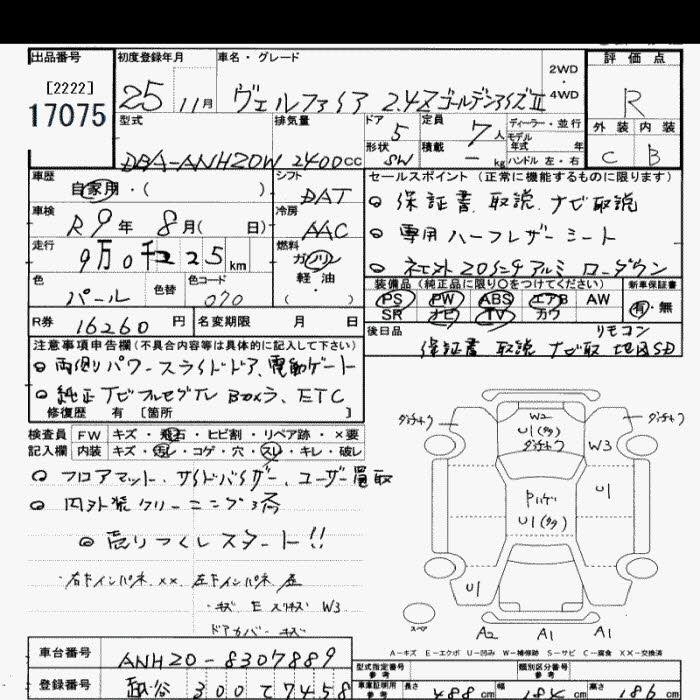 出品番号 初度登録年月 車名・グレード 評価点
[2222]
17075
25 11月 ヴェルファイア 2.4Zゴールデンアイズ II 2WD・4WD R
型式 排気量 ドア 定員 ディーラー・並行 外装 内装
DBA-ANH20W 2400cc 5 7人 モデル年式 年
形状 SW 積載 - kg ハンドル 左・右 C B
車歴 自家用・( ) シフト DAT セールスポイント (正常に機能するものに限ります)
車検 R9年 8月( 日) 冷房 AAC 保証書、取説、ナビ取説
走行 9万0千225km 燃料 ガソリン 軽油 ( ) 専用ハーフレザーシート
色 パール 色替 色コード 070 社外20インチアルミ ローダウン
装備品 (純正品に限り○をつけてください) 新車保証
PS PW ABS エアB AW 有・無
SR ナビ TV カワ
R券 16260円 名変期限 月 日 後日品 リモコン
保証書 取説 ナビ取 地図SD
注意事項申告欄(不具合内容等は具体的に記入して下さい)
両側パワースライドドア、電動ゲート
純正ナビフルセグTV Bカメラ、ETC
修復歴 有 [箇所 ]
検査員 FW キズ・飛石・ヒビ割・リペア跡・×要
記入欄 内装 キズ・汚レ・コゲ・穴・スレ・キレ・破レ
フロアマット、サイドバイザー、ユーザー買取
内外装クリーニング済
売りつくしスタート!!
右Fインパネ ×× 左Fインパネ
キズ E W3
ドアカバー キズ
W2
U1(多)
ダイチヨウ
W3
U1
U1(多)
U1
スペア
A2 A1 A1
A-キズ E-エクボ U-凹み W-補修跡 S-サビ C-腐食 XX-交換済
車台番号 ANH20-8307889
型式指定番号 参考 類別区分番号 参考
登録番号 300 て 7458
車庫証明用 参考 長さ 488cm 幅 184cm 高さ 186cm